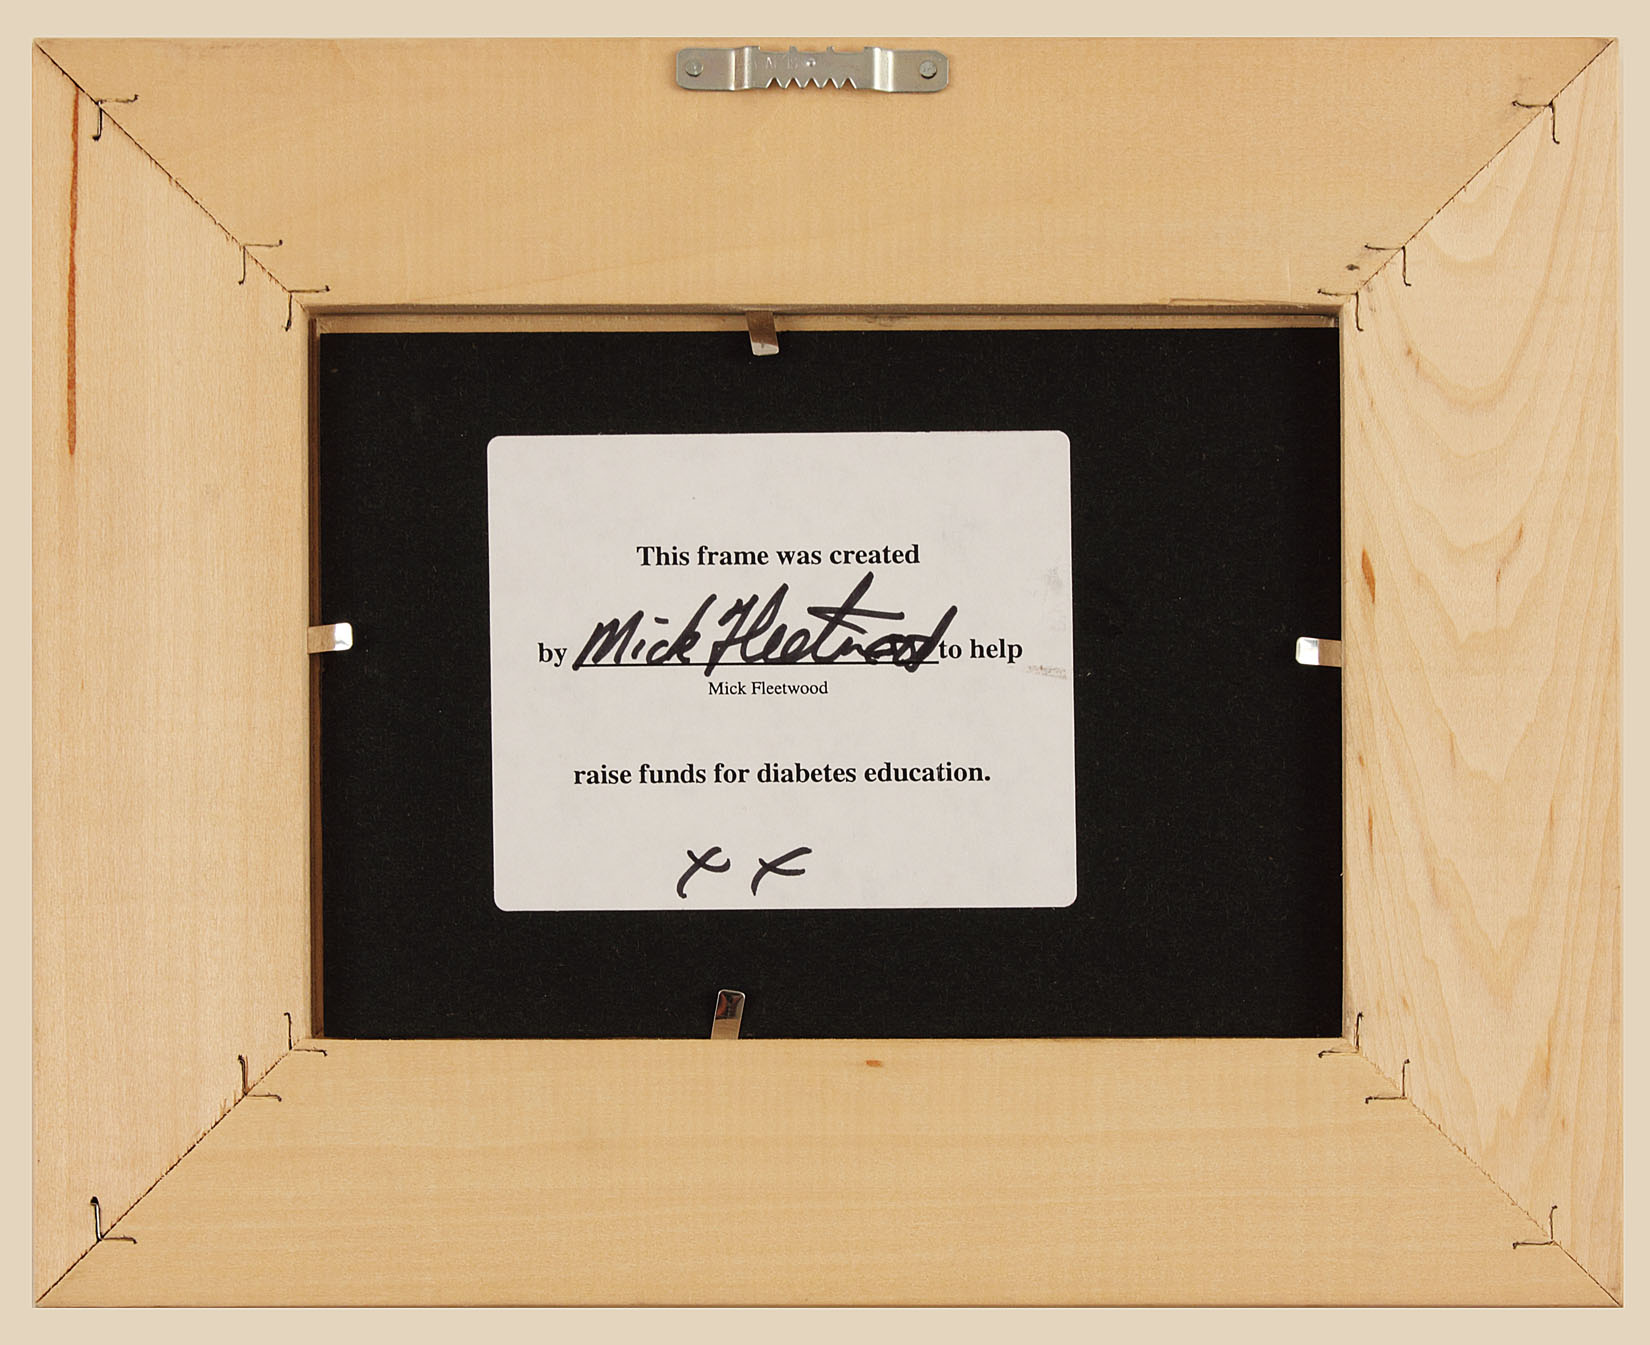 This frame was created
by Mick Fleetwood to help
Mick Fleetwood
raise funds for diabetes education.
x x